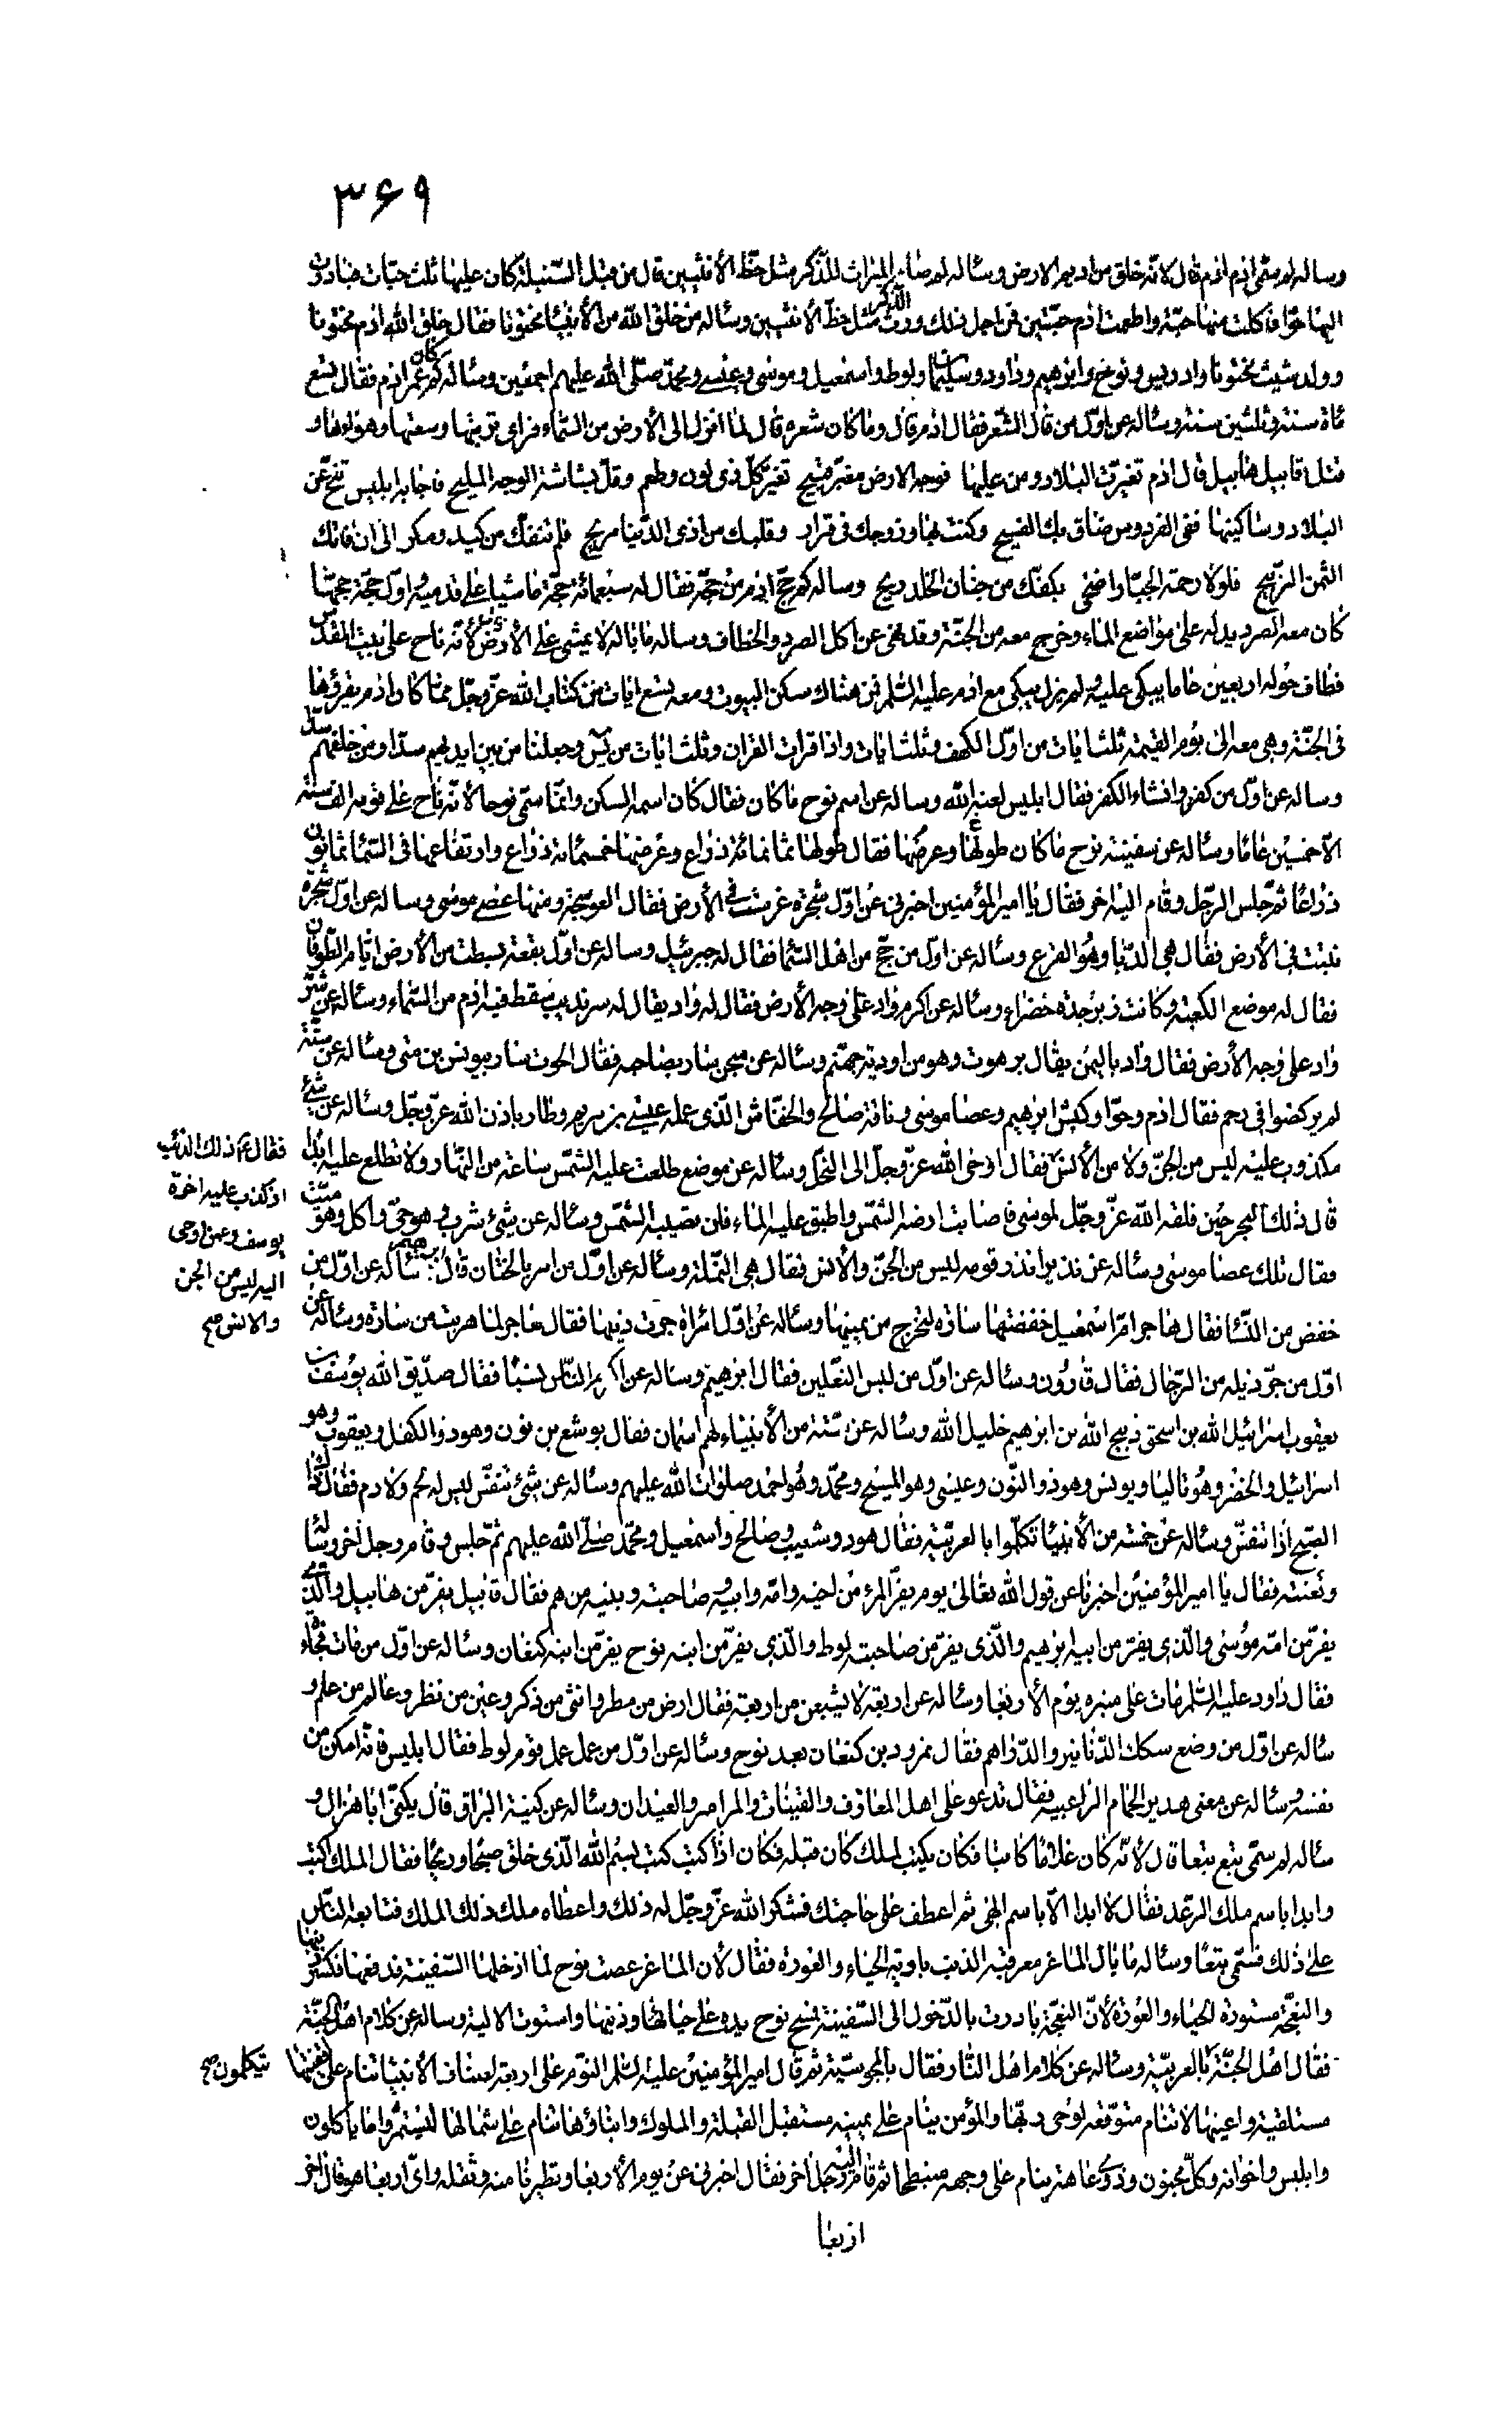 ۳۶۹
وساله لم سمّى ادم ادم قال لانّه خلق من اديم الارض وساله لم صار الميراث للذّكر مثل حظّ الأنثيين قال من قبل السّنبلة كان عليها ثلث حبّات فبادرت
اليها حوّا فاكلت منها حبّة واطعمت ادم حبّتين فمن اجل ذلك ورث الذّكر مثل حظّ الأنثيين وسأله من خلق الله من الأنبياء مختونا فقال خلق الله ادم مختونا
وولد شيث مختونا وادريس ونوح وابرهيم وداود وسليمان ولوط واسمعيل وموسى وعيسى ومحمّد صلّى الله عليهم اجمعين وسأله كم كان عمر ادم فقال تسع
مأة سنة وثلثين سنة وسأله عن اوّل من قال الشّعر فقال ادم قال وما كان شعره قال لمّا انزل الى الأرض من السّماء فراى تربتها وسعتها وهواها و
قتل قابيل هابيل قال ادم تغيّرت البلاد ومن عليها فوجه الارض مغبّر قبيح تغيّر كلّ ذى لون وطعم وقلّ بشاشة الوجه المليح فاجابه ابليس تنحّ عن
البلاد وساكنيها ففى الفردوس ضاق بك الفسيح وكنت بها وزوجك فى قرار وقلبك من اذى الدّنيا مريح فلم تنفكّ من كيدى ومكرى الى ان فاتك
الثمن الرّبيح فلولا رحمة الجبّار اضحى بكفّك من جنان الخلد ريح وساله كم حجّ ادم من حجّة فقال له سبعمائة حجّة ماشيا على قدميه واوّل حجّة حجّها
كان معه الصرد يدله على مواضع الماء وخرج معه من الجنّة وقد نهى عن اكل الصرد والخطاف وساله ما باله لا يمشى على الأرض قال لأنّه ناح على بيت المقدس
فطاف حوله اربعين عاما يبكى عليه ولم يزل يبكى مع ادم عليه السّلم فمن هناك سكن البيوت ومعه تسع ايات من كتاب الله عزّ وجلّ ممّا كان ادم يقرؤها
فى الجنّة وهى معه الى يوم القيمة ثلث ايات من اوّل الكهف وثلث ايات واذا قرات القران وثلث ايات من يس وجعلنا من بين ايديهم سدّا ومن خلفهم سدّا
وساله عن اوّل من كفر وانشاء الكفر فقال ابليس لعنه الله وساله عن اسم نوح ما كان فقال كان اسمه السكن وانّما سمّى نوحا لأنّه ناح على قومه الف سنة
الّا خمسين عاما وسأله عن سفينة نوح ما كان طولها وعرضها فقال طولها ثمانمائة ذراع وعرضها خمسمائة ذراع وارتفاعها فى السّماء ثمانون
ذراعا ثمّ جلس الرّجل وقام اليه اخر فقال يا امير المؤمنين اخبرنى عن اوّل شجرة غرست فى الأرض فقال العوسجة ومنها عصى موسى وساله عن اوّل شجرة
نبتت فى الأرض فقال هى الدّبا وهو القرع وسأله عن اوّل من حجّ من اهل السّما فقال له جبرئيل وساله عن اوّل بقعة بسطت من الأرض ايّام الطّوفان
فقال له موضع الكعبة وكانت زبرجدة خضراء وسأله عن اكرم واد على وجه الأرض فقال له واد يقال له سرنديب سقط فيه ادم من السّماء وسأله عن شرّ
واد على وجه الأرض فقال واد باليمن يقال برهوت وهو من اودية جهنّم وسأله عن سجن سار بصاحبه فقال الحوت سار بيونس بن متى وسأله عن ستّة
لم يركضوا فى رحم فقال ادم وحوّا وكبش ابرهيم وعصا موسى وناقة صالح والخفّاش الّذى عمله عيسى بن مريم وطار باذن الله عزّ وجلّ وسأله عن شئ
مكذوب عليه ليس من الجنّ ولا من الأنس فقال اوحى الله عزّ وجلّ الى النّحل وسأله عن موضع طلعت عليه الشّمس ساعة من النّهار ولا تطلع عليه ابدا
فقال ع ذلك الذئب
اذ كذب عليه اخوة
يوسف وعمن اوحى
اليه ليس من الجن
والانس صح
قال ذلك البحر حين فلقه الله عزّ وجلّ لموسى فاصابت ارضه الشّمس واطبق عليه الماء فلن تصيبه الشّمس وسأله عن شئ شرب وهو حىّ واكل وهو ميّت
فقال تلك عصا موسى وسأله عن نذير انذر قومه ليس من الجنّ والأنس فقال هى النّملة وسأله عن اوّل من امر بالختان قال ابرهيم سأله عن اوّل من
خفض من النّساء فقال هاجر امّ اسمعيل خفضتها سارة لتخرج من يمينها وسأله عن اوّل امرأة جرت ذيلها فقال هاجر لمّا هربت من سارة وسأله عن
اوّل من جرّ ذيله من الرّجال فقال قارون وسأله عن اوّل من لبس النّعلين فقال ابرهيم وسأله عن اكرم النّاس نسبًا فقال صدّيق الله يوسف بن
يعقوب اسرائيل الله بن اسحق ذبيح الله بن ابرهيم خليل الله وسأله عن ستّة من الأنبياء لهم اسمان فقال يوشع بن نون وهو ذو الكفل ويعقوب وهو
اسرائيل والخضر وهو تاليا ويونس وهو ذو النّون وعيسى وهو المسيح ومحمّد وهو احمد صلوات الله عليهم وسأله عن شئ تنفّس ليس له لحم ولا دم فقال له
الصّبح اذا تنفّس وسأله عن خمسة من الأنبياء تكلّموا بالعربيّة فقال هود وشعيب وصالح واسمعيل ومحمّد صلّى الله عليهم ثمّ جلس وقام رجل اخر وسأله
وتعنته فقال يا امير المؤمنين اخبرنا عن قول الله تعالى يوم يفرّ المرء من اخيه وامّه وابيه وصاحبته وبنيه من هم فقال قابيل يفرّ من هابيل والّذى
يفرّ من امّه موسى والّذى يفرّ من ابيه ابرهيم والّذى يفرّ من صاحبته لوط والّذى يفرّ من ابنه نوح يفرّ من ابنه كنعان وسأله عن اوّل من مات فجأة
فقال داود عليه السّلم مات على منبره يوم الأربعا وسأله عن اربعة لا يشبعن من اربعة فقال ارض من مطر وانثى من ذكر وعين من نظر وعالم من علم و
سأله عن اوّل من وضع سكك الدّنانير والدّراهم فقال نمرود بن كنعان بعد نوح وسأله عن اوّل من عمل عمل قوم لوط فقال ابليس فانّه امكن من
نفسه وسأله عن معنى هدير الحمام الراعبية فقال تدعو على اهل المعازف والقينات والمزامير والعيدان وسأله عن كنية البراق قال يكنّى ابا هزال و
سأله لم سمّى تبّع تبّعا قال لأنّه كان غلاما كاتبا فكان يكتب لملك كان قبله فكان اذا كتب كتب بسم الله الّذى خلق صبحا وريحا فقال الملك اكتب
وابدا باسم ملك الرّعد فقال لا ابدا الّا باسم الهى ثم اعطف على حاجتك فشكر الله عزّ وجلّ له ذلك واعطاه ملك ذلك الملك فتابعه النّاس
على ذلك فسمّى تبّعا وسأله ما بال الماعز معرقبة الذنب بادية الحياء والعورة فقال لأن الماعز عصت نوح لما ادخلها السّفينة فدفعها فكسر ذنبها
والنعجة مستورة الحياء والعورة لأنّ النعجة بادرت بالدّخول الى السّفينة فمسح نوح يده على حيائها وذنبها واستوت الالية وسأله عن كلام اهل الجنّة
فقال اهل الجنّة بالعربيّة وسأله عن كلام اهل النّار فقال بالمجوسيّة ثم قال امير المؤمنين عليه السّلم النّوم على اربعة اصناف الأنبياء تنام على اقفيتها
يتكلمون صح
مستلقية واعينها لا تنام متوقّعة لوحى ربّها والمؤمن ينام على يمينه مستقبل القبلة والملوك وابناؤها تنام على شمالها ليستمرؤا ما ياكلون
وابليس واخوانه وكلّ مجنون وذو عاهة ينام على وجهه منبطحا ثم قام اليه رجل اخر فقال اخبرنى عن يوم الأربعا وتطيرنا منه وثقله واىّ اربعا هو قال اخر
اربعا